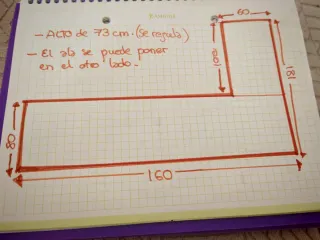 - Alto de 73 cm. (se regula)
- El ala se puede poner
en el otro lado.
60
100
181
80
160